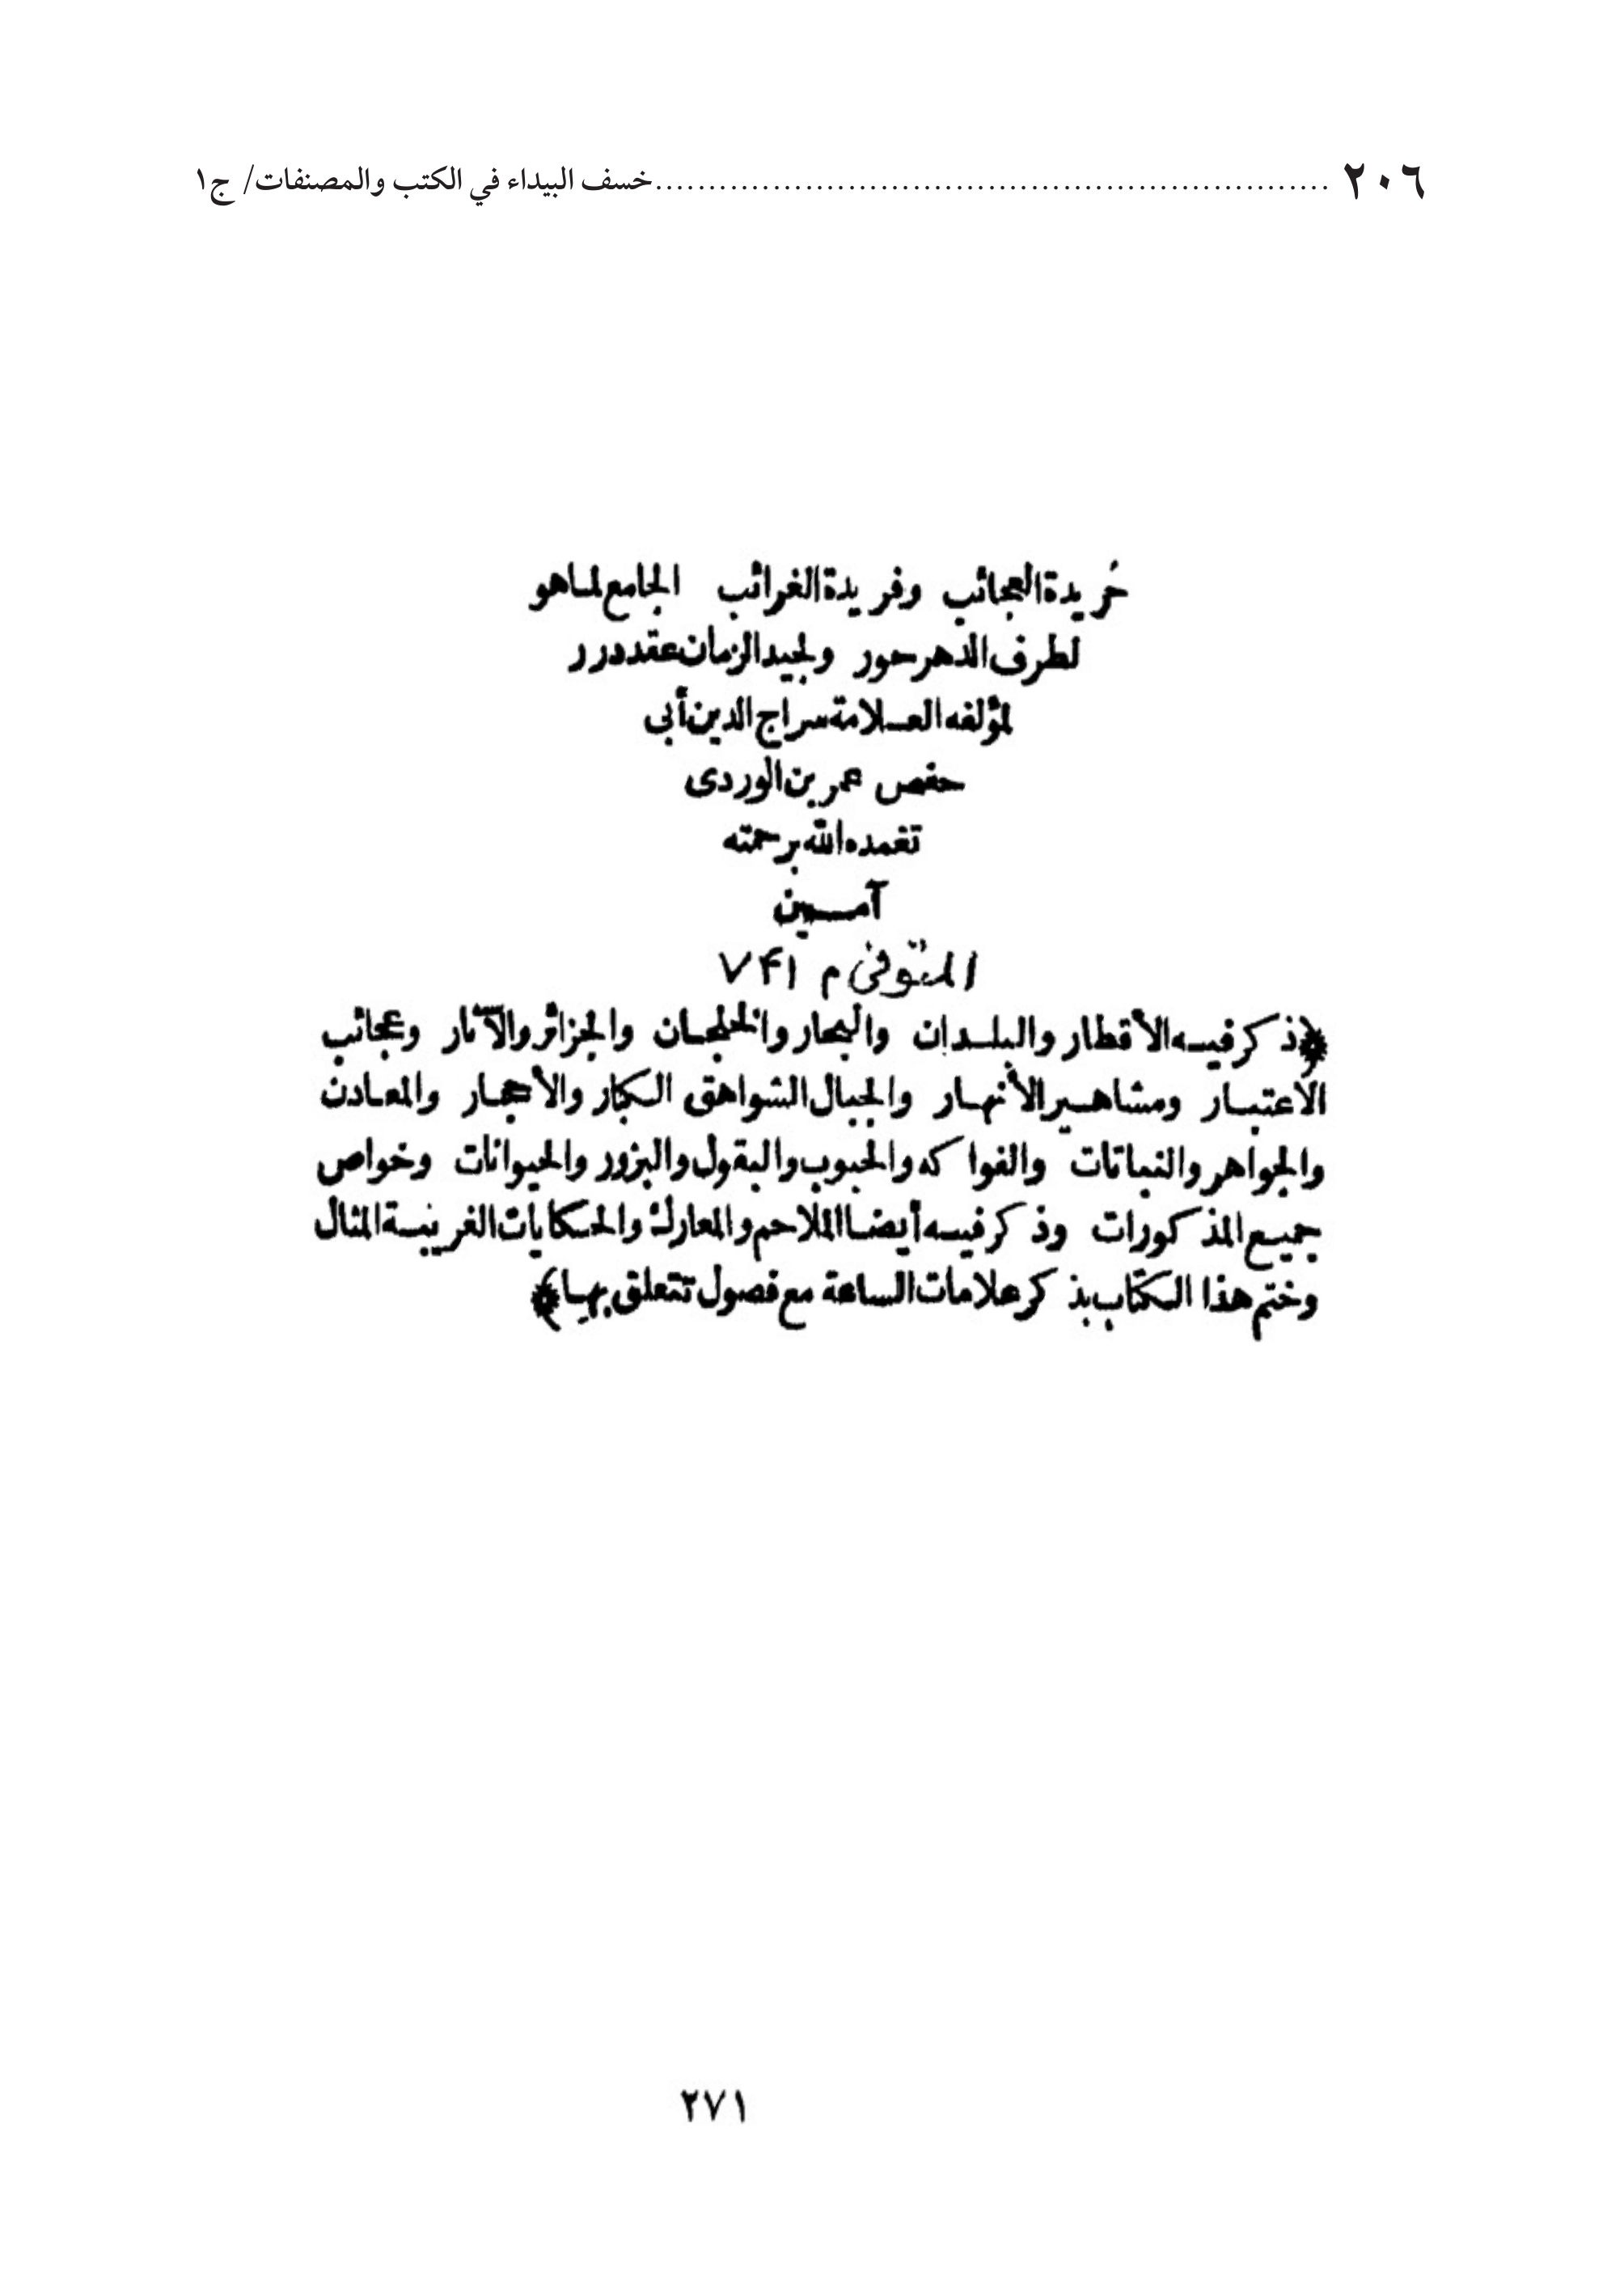 ٢٠٦ ................................................................ خسف البيداء في الكتب والمصنفات/ ج١
خريدة العجائب وفريدة الغرائب الجامع لما هو
لطرف الدهر حور ولجيد الزمان عقد درر
لمؤلفه العلامة سراج الدين أبى
حفص عمر بن الوردى
تغمده الله برحمته
آمين
المتوفى م ٧۴١
﴿ذكر فيه الأقطار والبلدان والبحار والخلجان والجزائر والآثار وعجائب
الاعتبار ومشاهير الأنهار والجبال الشواهق الكبار والأحجار والمعادن
والجواهر والنباتات والفواكه والحبوب والبقول والبزور والحيوانات وخواص
جميع المذكورات وذكر فيه أيضا الملاحم والمعارك والحكايات الغريبة المثال
وختم هذا الكتاب بذكر علامات الساعة مع فصول تتعلق بها﴾
٢٧١